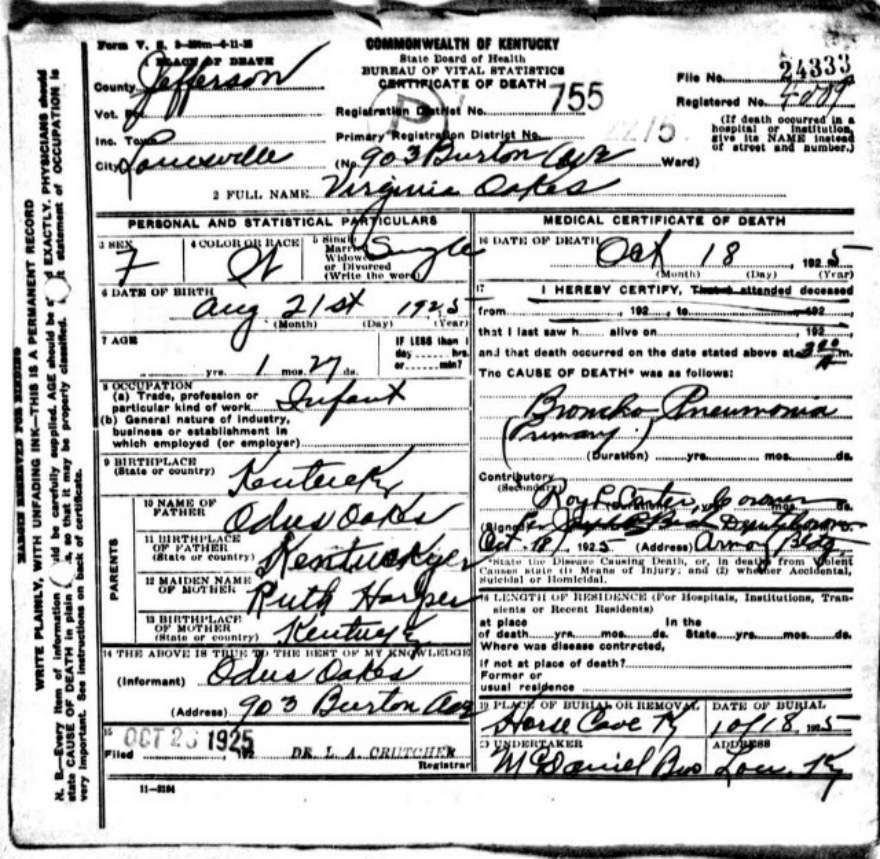 Form V. S.
COMMONWEALTH OF KENTUCKY
State Board of Health
BUREAU OF VITAL STATISTICS
CERTIFICATE OF DEATH
1 PLACE OF DEATH
County Jefferson
Vot.
Inc. Town
City Louisville
File No. 24333
Registered No.
Registration District No. 755
Primary Registration District No.
(No. 903 Burton Ave Ward)
(If death occurred in a hospital or institution, give its NAME instead of street and number.)
2 FULL NAME Virginia Oakes
PERSONAL AND STATISTICAL PARTICULARS
3 SEX F
4 COLOR OR RACE W
5 Single Married Widowed or Divorced (Write the word) Single
6 DATE OF BIRTH
Aug 21st 1925
(Month) (Day) (Year)
7 AGE
yrs. 1 mos. 27 ds.
IF LESS than 1 day hrs. or min?
8 OCCUPATION
(a) Trade, profession or particular kind of work Infant
(b) General nature of industry, business or establishment in which employed (or employer)
9 BIRTHPLACE
(State or country) Kentucky
PARENTS
10 NAME OF FATHER Odus Oakes
11 BIRTHPLACE OF FATHER (State or country) Kentucky
12 MAIDEN NAME OF MOTHER Ruth Harper
13 BIRTHPLACE OF MOTHER (State or country) Kentucky
14 THE ABOVE IS TRUE TO THE BEST OF MY KNOWLEDGE
(Informant) Odus Oakes
(Address) 903 Burton Ave
15
Filed OCT 1925 192 DR. L. A. CRUTCHER
Registrar
11-3184
MEDICAL CERTIFICATE OF DEATH
16 DATE OF DEATH Oct 18 1925
(Month) (Day) (Year)
17 I HEREBY CERTIFY, That I attended deceased
from 192 , to 192
that I last saw h alive on 192
and that death occurred on the date stated above at m.
The CAUSE OF DEATH* was as follows:
Broncho Pneumonia
(Primary.)
(Duration) yrs. mos. ds.
Contributory
(Secondary)
Roy L Carter, Coroner
(Signed) Per Deputy Coroner
Oct 18, 1925 (Address) Armory Bldg.
*State the Disease Causing Death, or, in deaths from Violent
Causes state (1) Means of Injury; and (2) whether Accidental,
Suicidal or Homicidal.
18 LENGTH OF RESIDENCE (For Hospitals, Institutions, Transients or Recent Residents)
at place In the
of death yrs. mos. ds. State yrs. mos. ds.
Where was disease contrcted,
if not at place of death?
Former or
usual residence
19 PLACE OF BURIAL OR REMOVAL Horse Cave Ky
DATE OF BURIAL 10/18, 1925
20 UNDERTAKER McDaniel Bros
ADDRESS Lou. Ky
MARGIN RESERVED FOR BINDING
WRITE PLAINLY, WITH UNFADING INK—THIS IS A PERMANENT RECORD
N. B.—Every item of information be carefully supplied. AGE should be EXACTLY. PHYSICIANS should
state CAUSE OF DEATH in plain so that it may be properly classified. statement of OCCUPATION is
very important. See instructions on back of certificate.